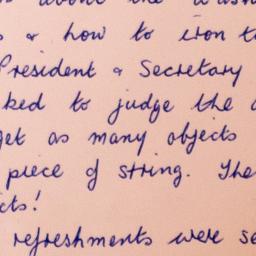 about the
s & how to iron t
President & Secretary
ked to judge the
get as many objects
piece of string. The
cts!
refreshments were se